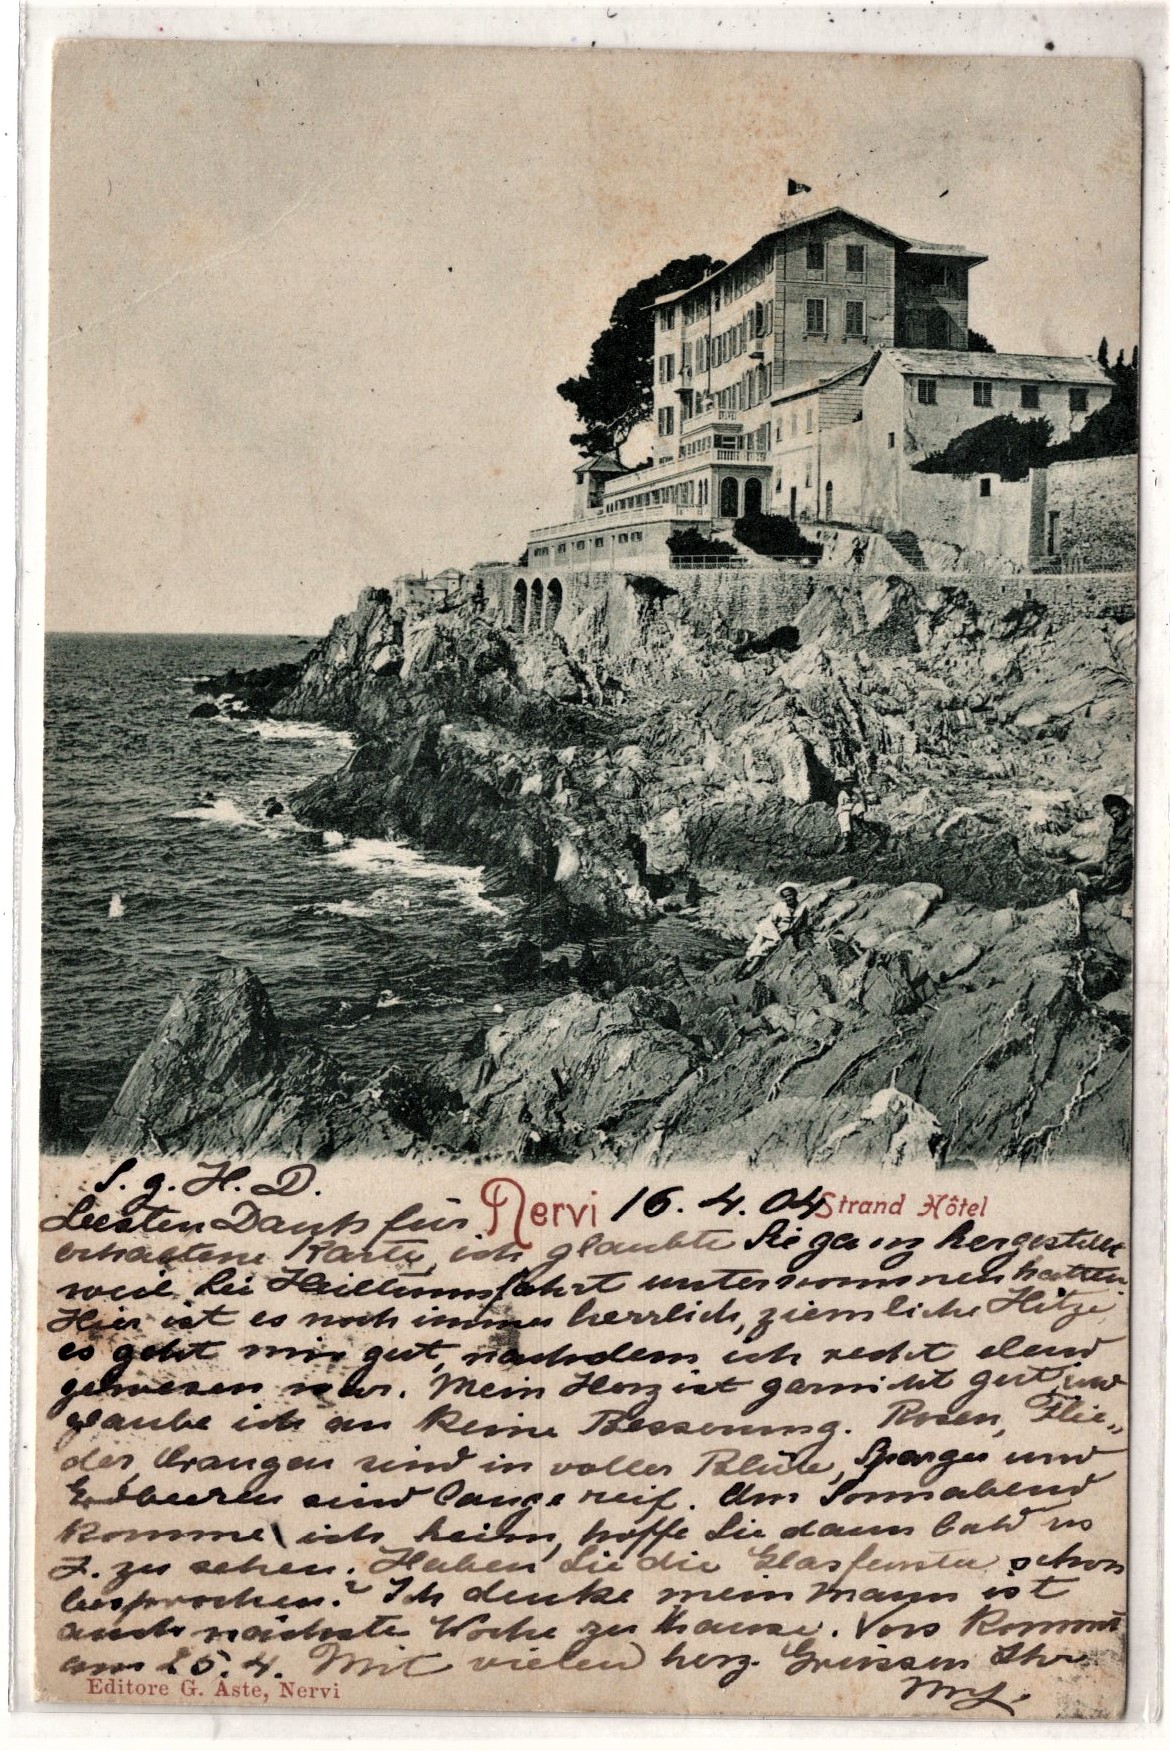 S. g. H. D.
Nervi 16. 4. 04 Strand Hôtel
Besten Dank für
erhaltene Karte, ich glaubte Sie ganz hergestellt
weil Sie unternommen hatten
Hier ist es noch immer herrlich, ziemliche Hitze,
es geht mir gut, nachdem ich recht elend
gewesen war. Mein Herz ist garnicht gut und
glaube ich an keine Besserung. Rosen, Flie„
der, Orangen sind in voller Blüte, Spargel und
Erdbeeren sind lange reif. Am Sonnabend
komme ich heim, hoffe Sie dann bald in
J. zu sehen. Haben Sie die Glasfenster schon
besprochen? Ich denke mein Mann ist
auch nächste Woche zu Hause. kommt
am 25. 4. Mit vielen herz. Grüssen Ihre
Editore G. Aste, Nervi